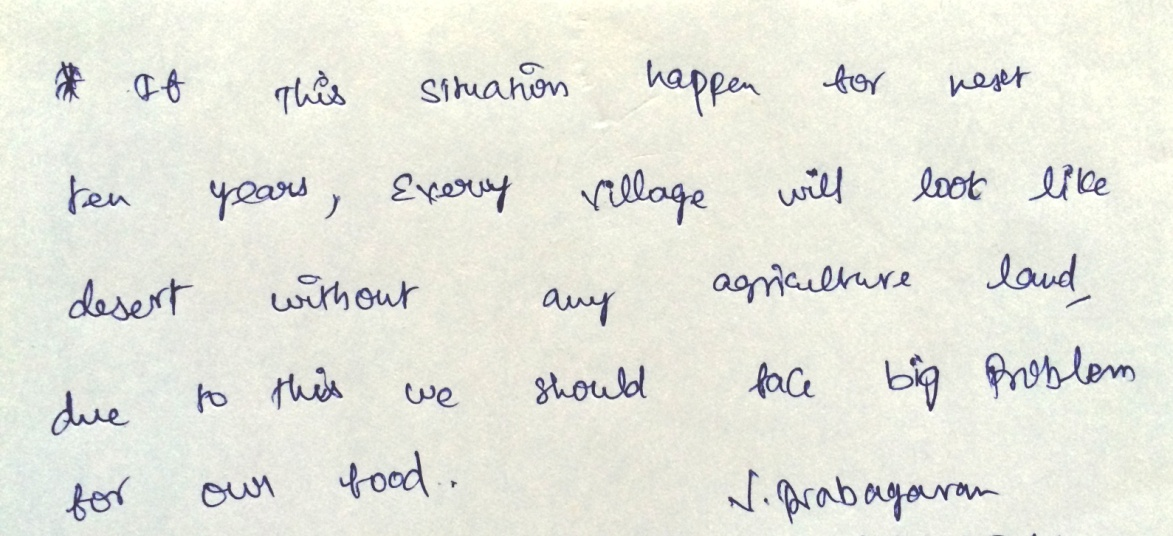 * If This situation happen for next
ten years, Every village will look like
desert without any agriculture land,
due to this we should face big problem
for our food..
N. Prabagaran